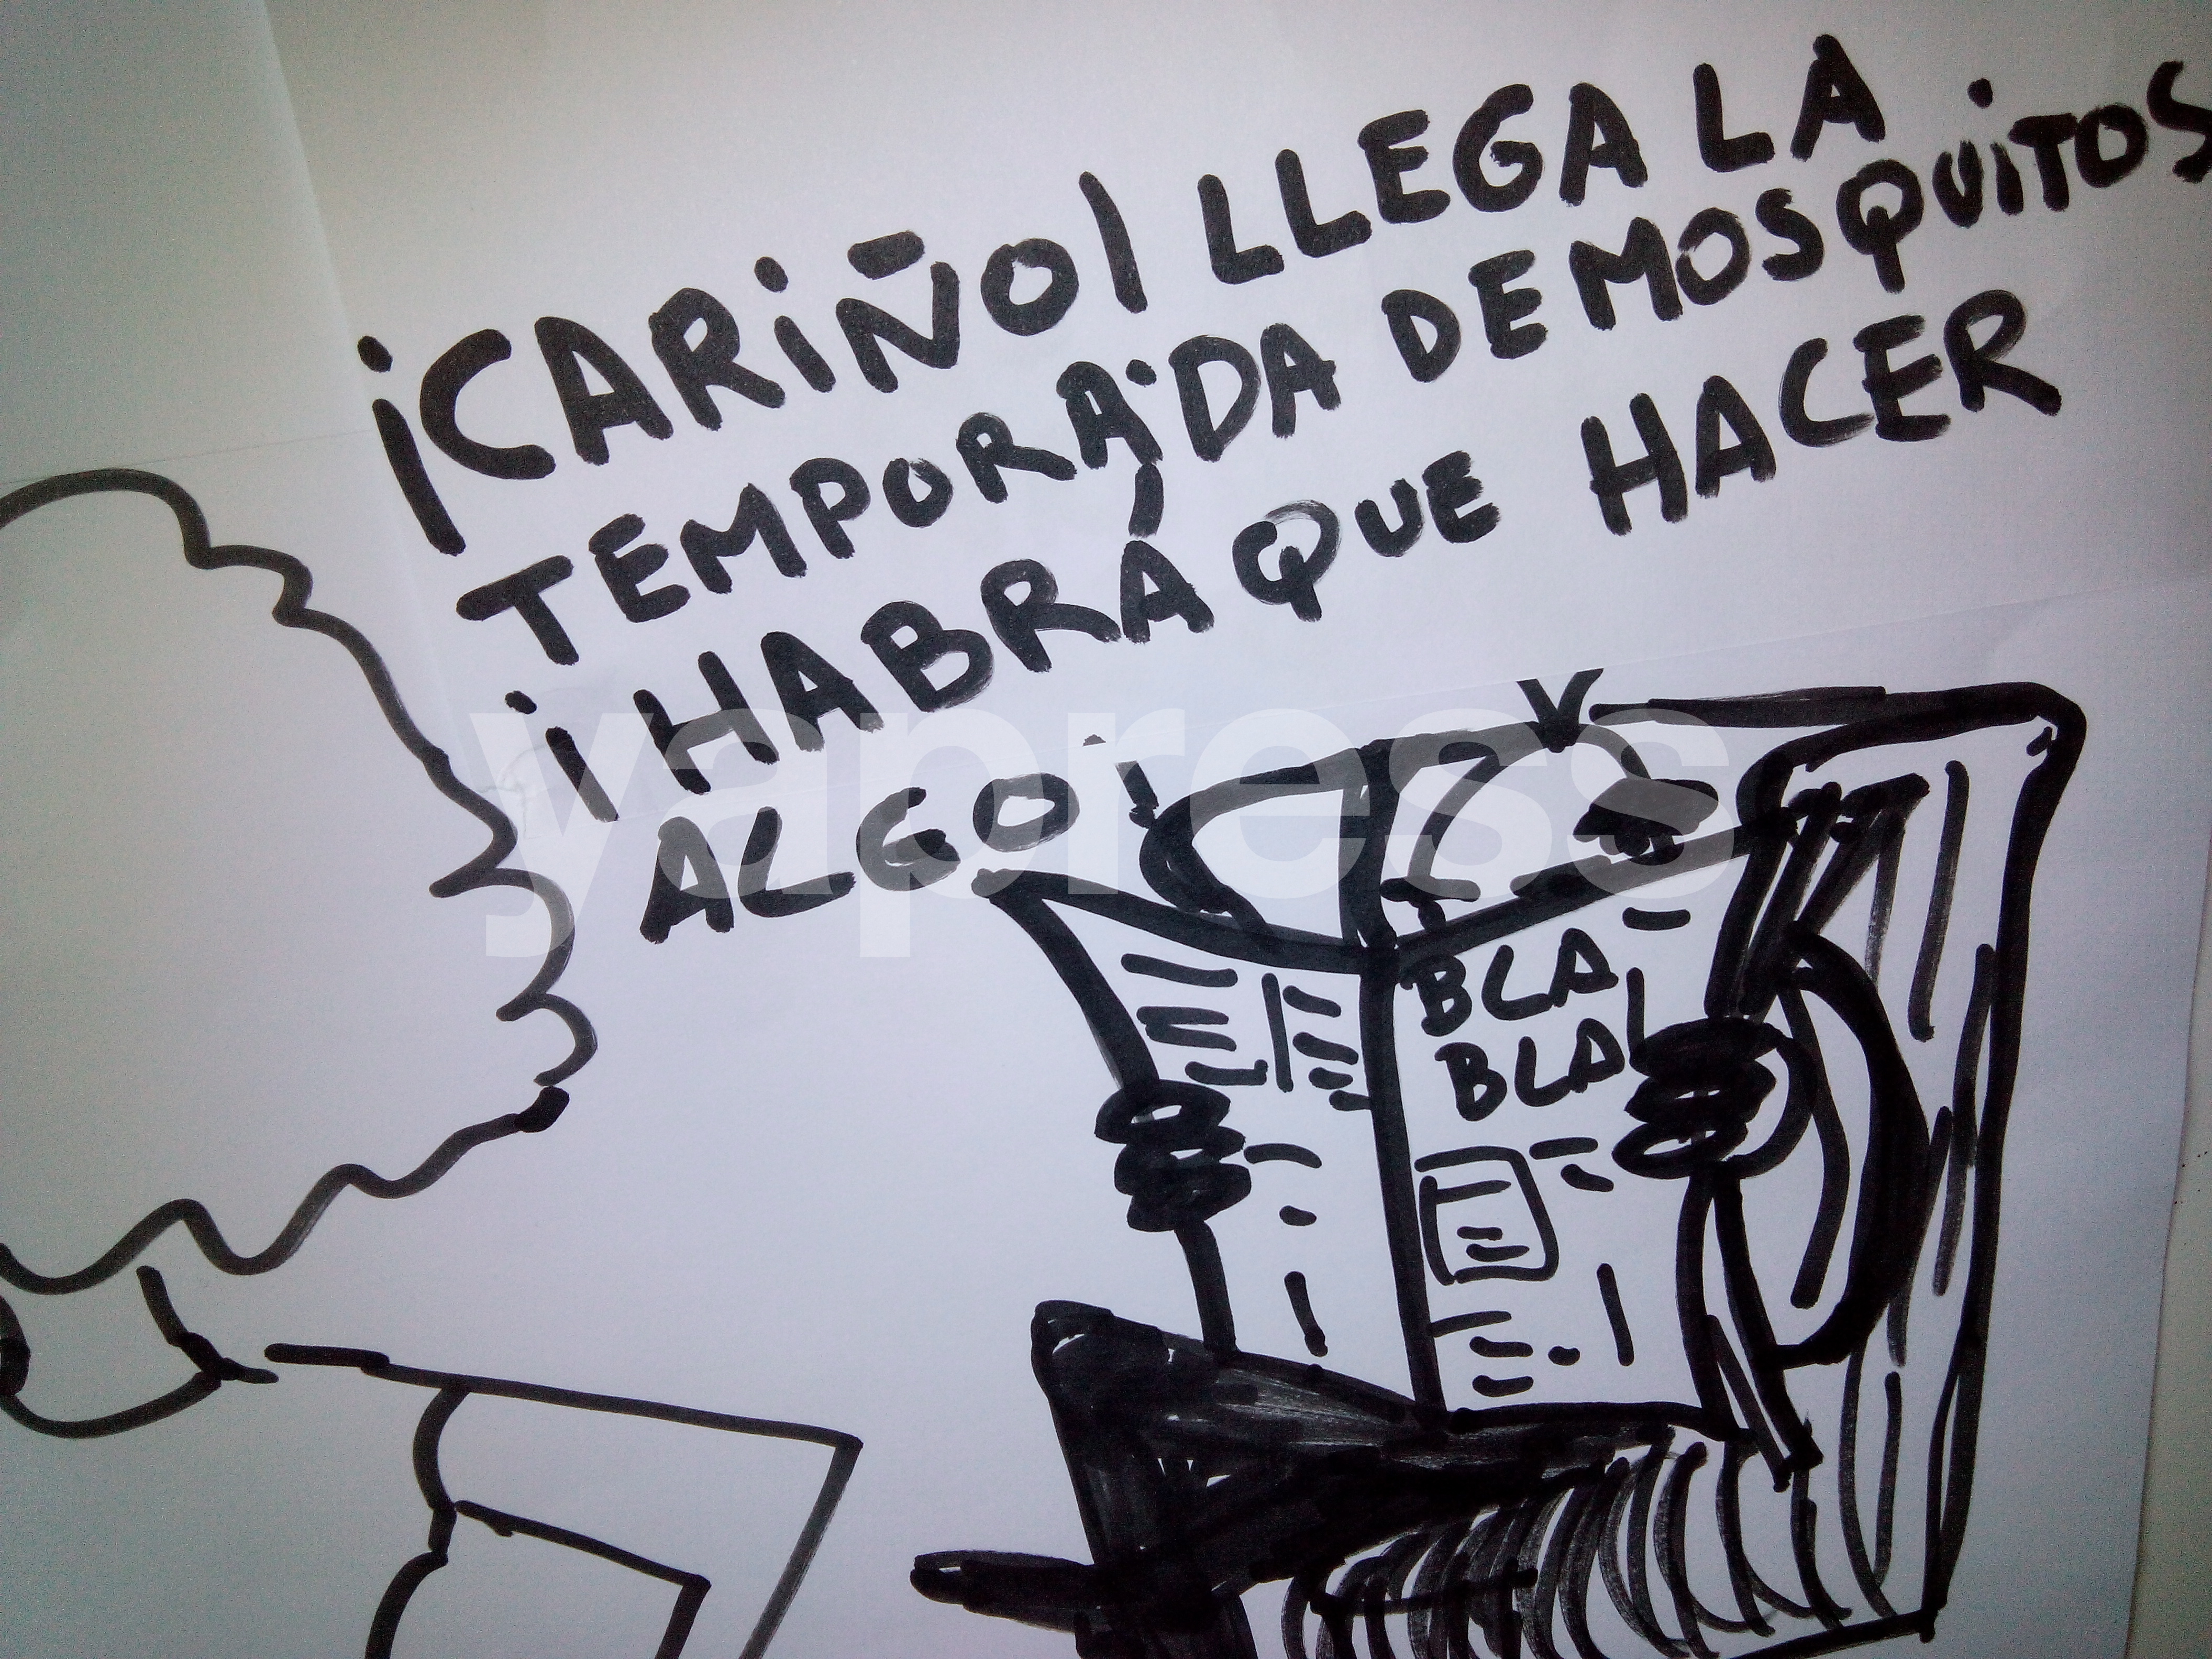 ¡CARIÑO! LLEGA LA
TEMPORADA DE MOSQUITOS
¡HABRÁ QUE HACER
ALGO!
BLA
BLA
yapress